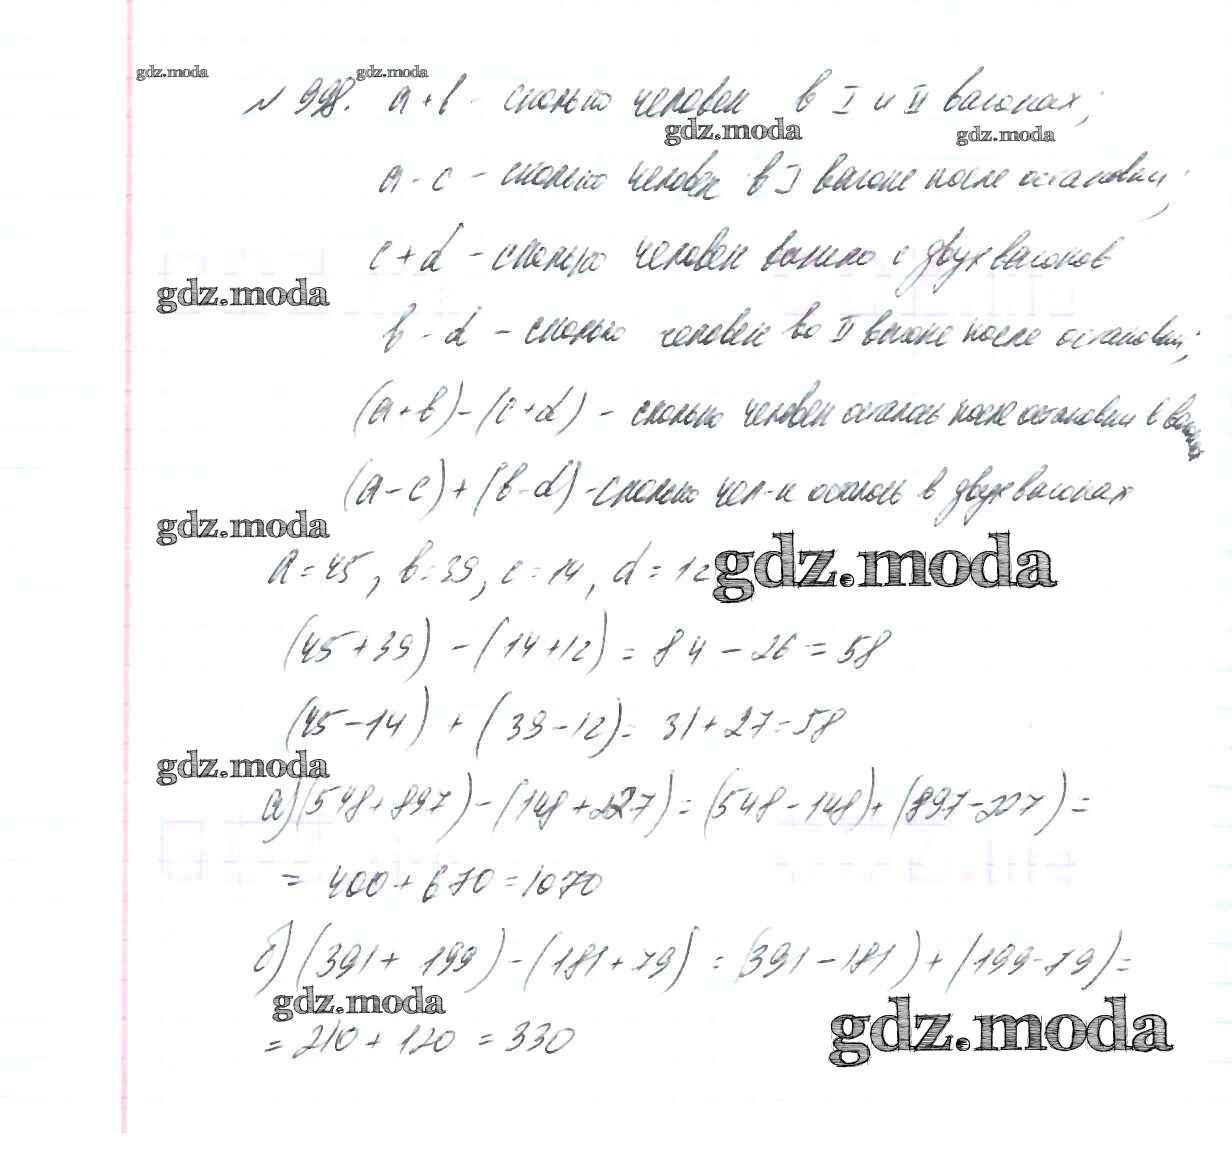 gdz.moda gdz.moda
№ 998. a + b - сколько человек в I и II вагонах;
gdz.moda gdz.moda
a - c - сколько человек в I вагоне после остановки;
c + d - сколько человек вышло с двух вагонов
gdz.moda
b - d - сколько человек во II вагоне после остановки;
(a + b) - (c + d) - сколько человек осталось после остановки в вагонах
(a - c) + (b - d) - сколько чел-к осталось в двух вагонах
gdz.moda
a = 45, b = 39, c = 14, d = 12 gdz.moda
(45 + 39) - (14 + 12) = 84 - 26 = 58
(45 - 14) + (39 - 12) = 31 + 27 = 58
gdz.moda
а) (548 + 897) - (148 + 227) = (548 - 148) + (897 - 227) =
= 400 + 670 = 1070
б) (391 + 199) - (181 + 79) = (391 - 181) + (199 - 79) =
gdz.moda gdz.moda
= 210 + 120 = 330